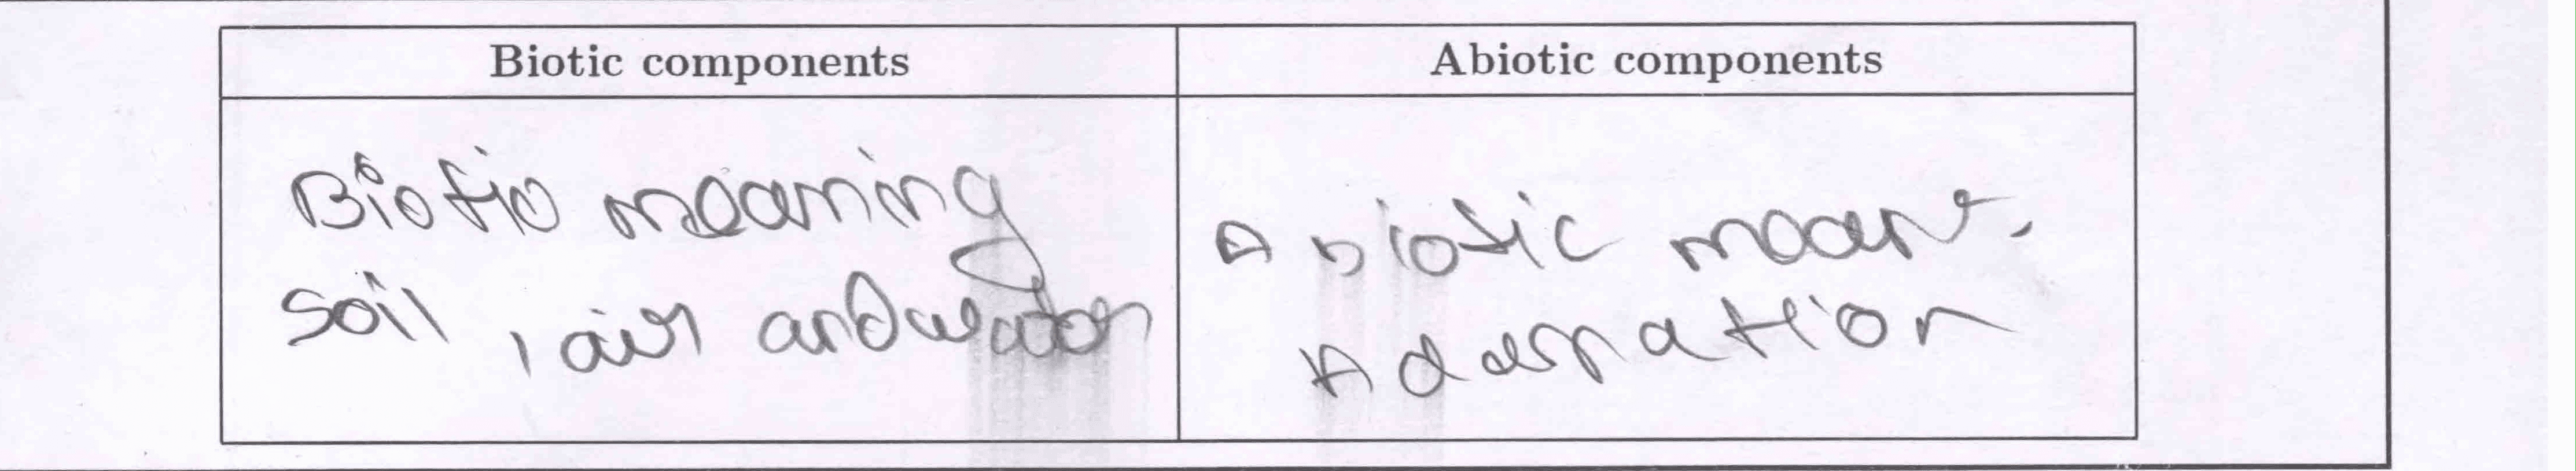 Biotic components
Abiotic components
Biotio meaning
soil, air and water
Abiotic mean
Adaspation